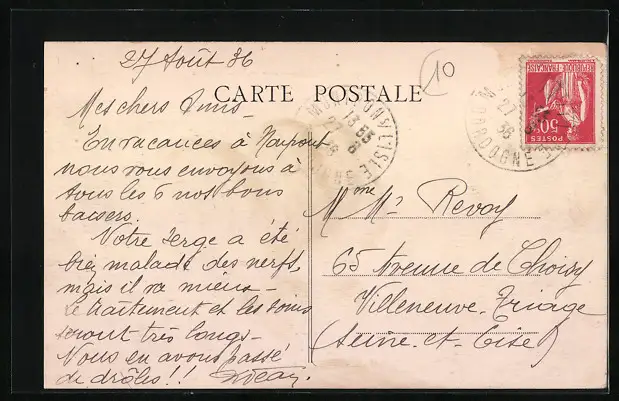 27 Août 36
10
CARTE POSTALE
Mes chers Amis
En vacances à
nous vous envoyons à
tous les 6 nos bons
baisers.
Votre Serge a été
bien malade des nerfs,
mais il va mieux -
Le traitement et les soins
seront très longs -
Vous en avons passé
de drôles !!
REPUBLIQUE FRANÇAISE
50c
POSTES
13 35
27 8
36
DORDOGNE
Mme Mr Revoy
65 Avenue de Choisy
Villeneuve-Triage
(Seine-et-Oise)